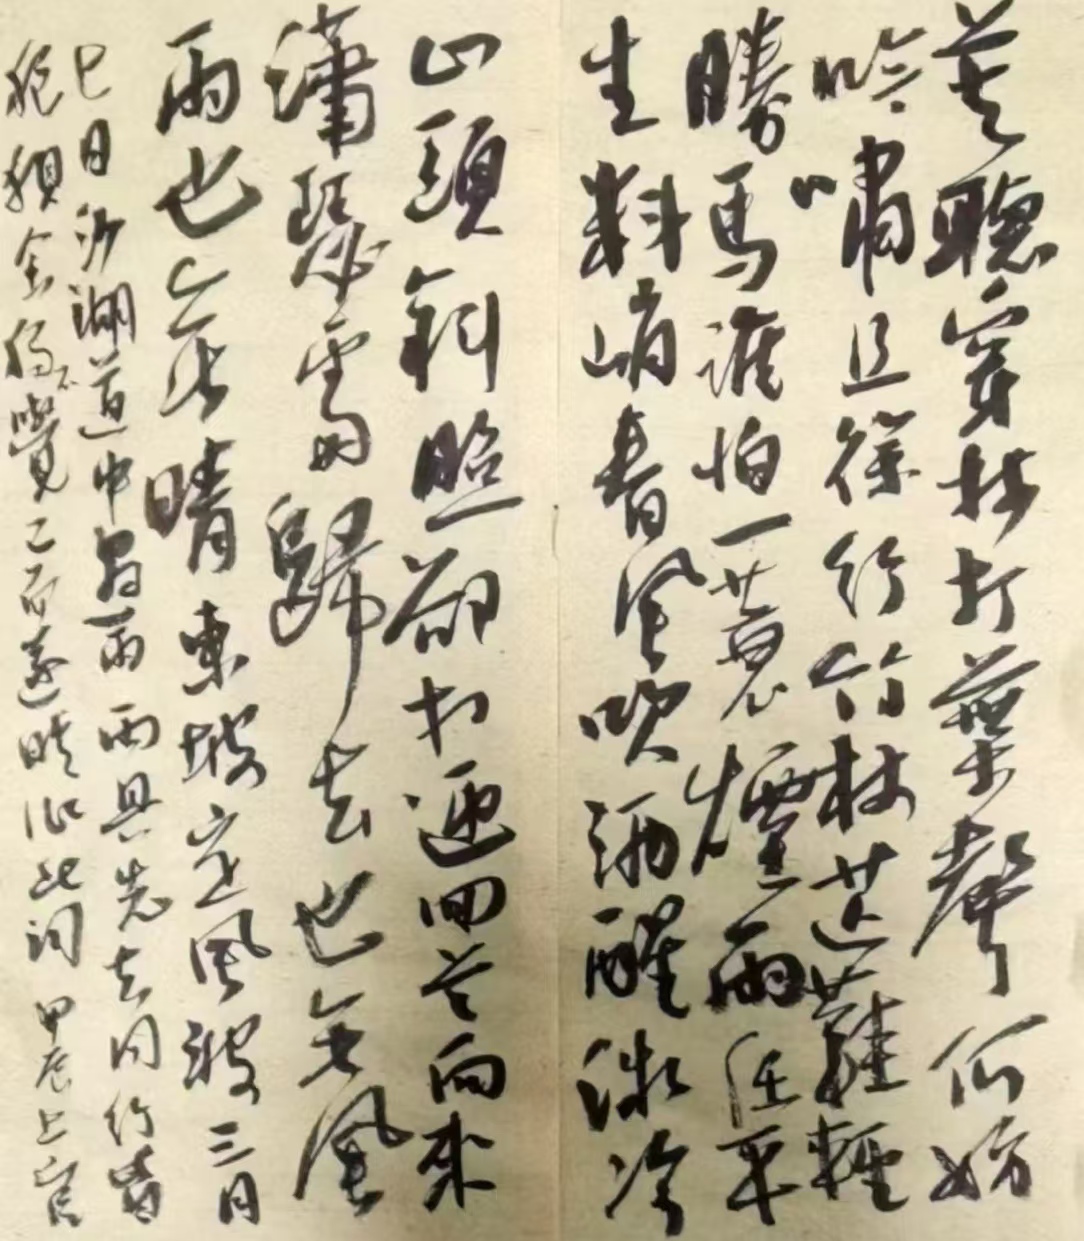 莫聽穿林打葉聲何妨
吟嘯且徐行竹杖芒鞋輕
勝馬誰怕一蓑煙雨任平
生料峭春風吹酒醒微冷
山頭斜照卻相迎回首向來
瀟瑟處歸去也無風
雨也無晴東坡定風波三月
七日沙湖道中遇雨雨具先去同行皆
狼狽余獨不覺已而遂晴作此詞 甲辰上官